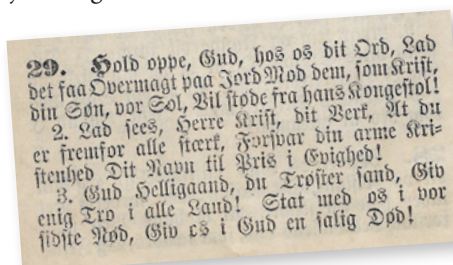 29. Hold oppe, Gud, hos os dit Ord, Lad
det faa Overmagt paa Jord Mod dem, som Krist,
din Søn, vor Sol, Vil støde fra hans Kongestol!
2. Lad sees, Herre Krist, dit Verk, At du
er fremfor alle stærk, Forsvar din arme Kri-
stenhed Dit Navn til Pris i Evighed!
3. Gud Helligaand, du Trøster sand, Giv
enig Tro i alle Land! Stat med os i vor
sidste Nød, Giv os i Gud en salig Død!